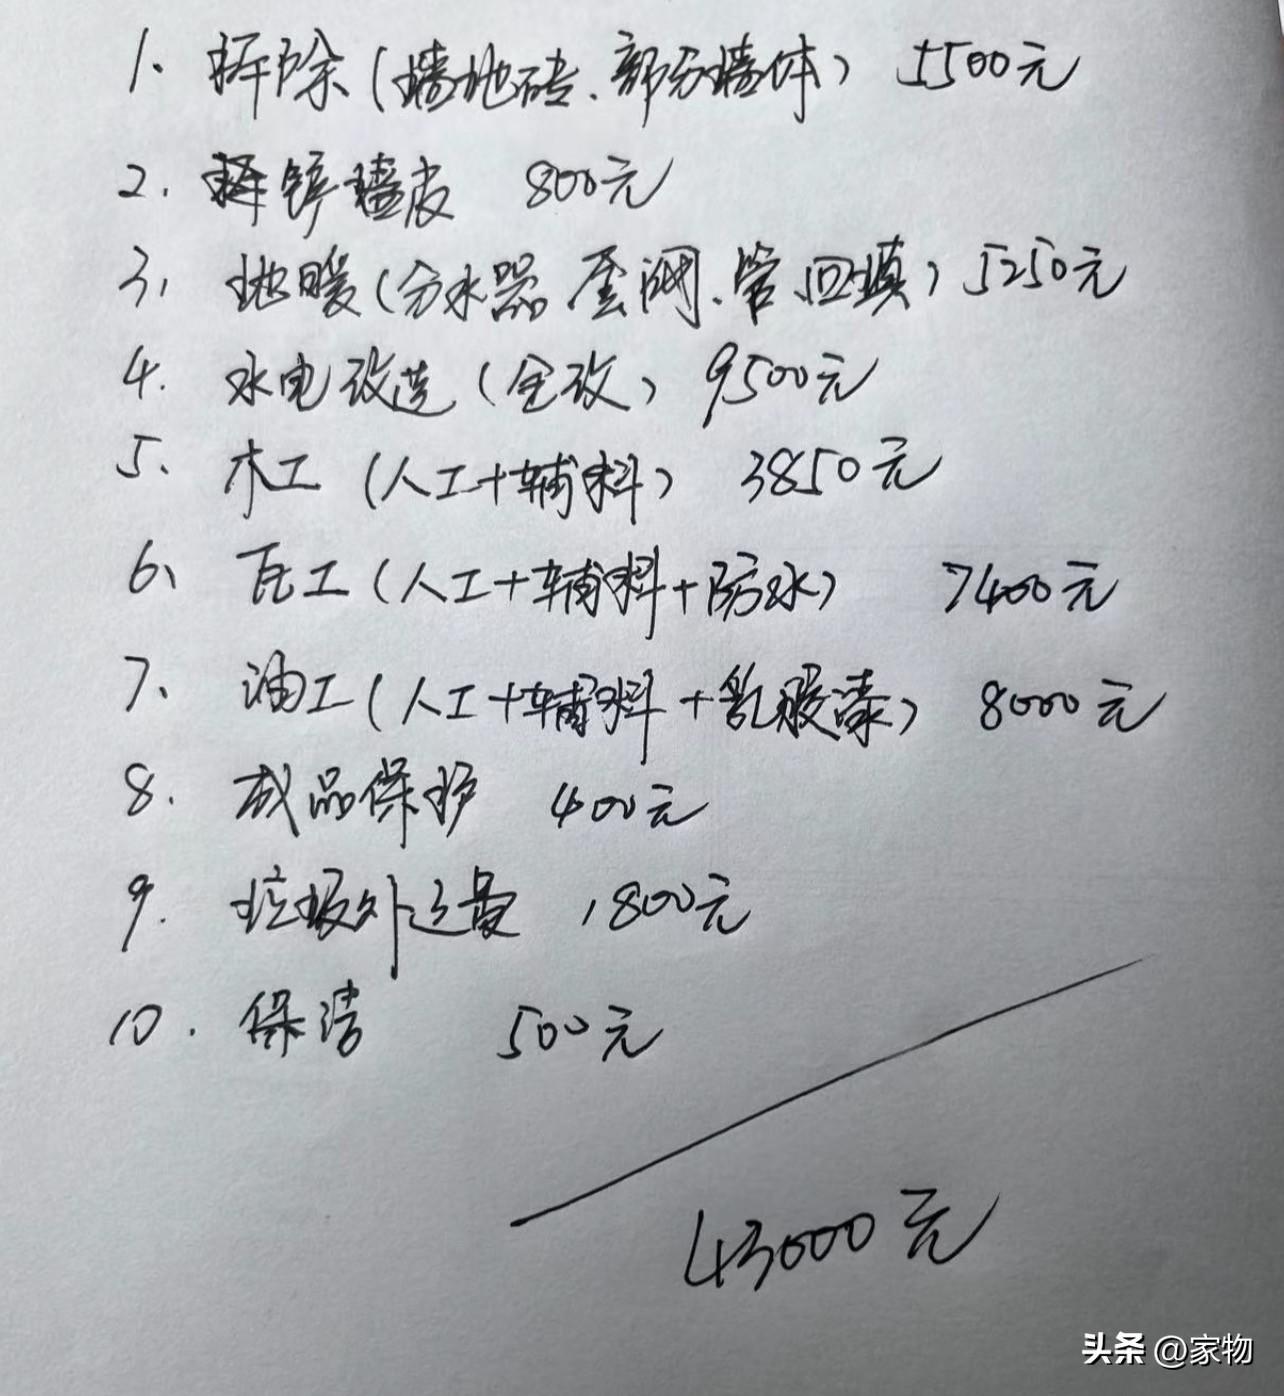 1. 拆除（墙地砖、部分墙体） 5500元
2. 铲墙皮 800元
3、地暖（分水器、套阀、管、回填） 5250元
4. 水电改造（全改） 9500元
5、木工（人工+辅料） 3850元
6、瓦工（人工+辅料+防水） 7400元
7、油工（人工+辅料+乳胶漆） 8000元
8. 成品保护 400元
9. 垃圾外运费 1800元
10. 保洁 500元
43000元
头条 @家物